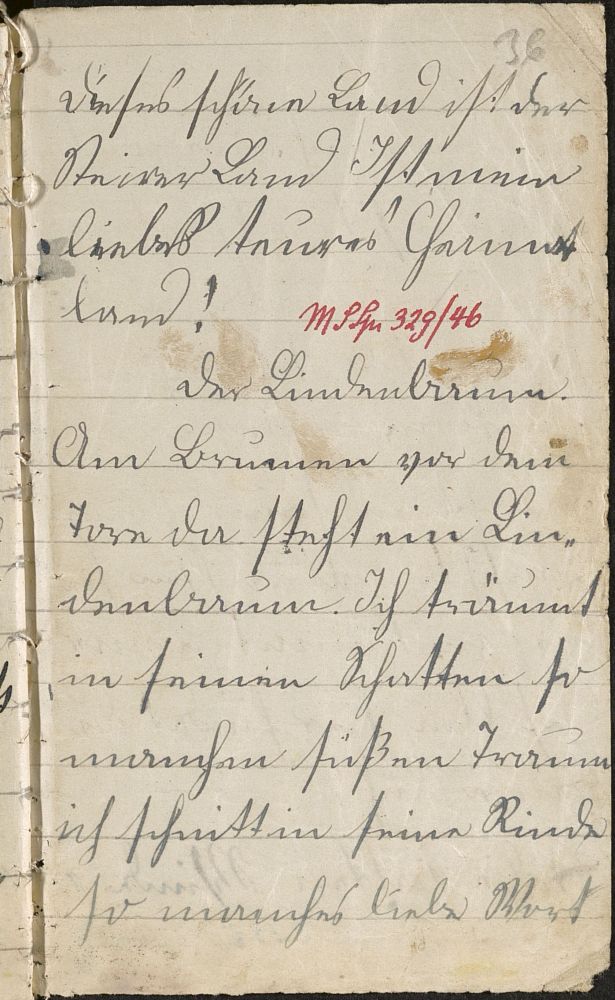 36
dieses schöne Land ist der
Steirer Land Ist mein
liebes teures Heimat
land!
der Lindenbaum.
Am Brunnen vor dem
Tore da steht ein Lin„
denbaum. Ich träumt
in seinen Schatten so
manchen süßen Traum
ich schnitt in seine Rinde
so manches liebe Wort